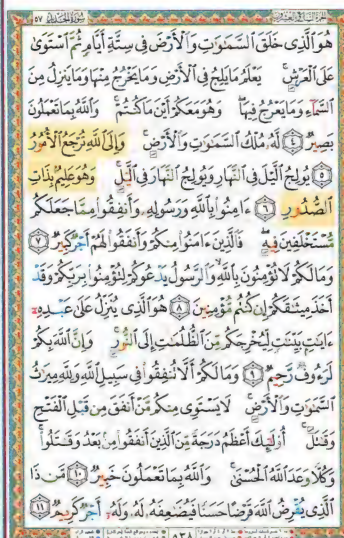 سُورَةُ الْحَدِيدِ ٥٧
هُوَ الَّذِي خَلَقَ السَّمَٰوَٰتِ وَالْأَرْضَ فِي سِتَّةِ أَيَّامٍ ثُمَّ اسْتَوَىٰ
عَلَى الْعَرْشِ ۚ يَعْلَمُ مَا يَلِجُ فِي الْأَرْضِ وَمَا يَخْرُجُ مِنْهَا وَمَا يَنزِلُ مِنَ
السَّمَاءِ وَمَا يَعْرُجُ فِيهَا ۖ وَهُوَ مَعَكُمْ أَيْنَ مَا كُنتُمْ ۚ وَاللَّهُ بِمَا تَعْمَلُونَ
بَصِيرٌ ٤ لَّهُ مُلْكُ السَّمَٰوَٰتِ وَالْأَرْضِ ۚ وَإِلَى اللَّهِ تُرْجَعُ الْأُمُورُ
٥ يُولِجُ الَّيْلَ فِي النَّهَارِ وَيُولِجُ النَّهَارَ فِي الَّيْلِ ۚ وَهُوَ عَلِيمٌ بِذَاتِ
الصُّدُورِ ٦ ءَامِنُوا بِاللَّهِ وَرَسُولِهِ وَأَنفِقُوا مِمَّا جَعَلَكُم
مُّسْتَخْلَفِينَ فِيهِ ۖ فَالَّذِينَ ءَامَنُوا مِنكُمْ وَأَنفَقُوا لَهُمْ أَجْرٌ كَبِيرٌ ٧
وَمَا لَكُمْ لَا تُؤْمِنُونَ بِاللَّهِ ۙ وَالرَّسُولُ يَدْعُوكُمْ لِتُؤْمِنُوا بِرَبِّكُمْ وَقَدْ
أَخَذَ مِيثَٰقَكُمْ إِن كُنتُم مُّؤْمِنِينَ ٨ هُوَ الَّذِي يُنَزِّلُ عَلَىٰ عَبْدِهِ
ءَايَٰتٍ بَيِّنَٰتٍ لِّيُخْرِجَكُم مِّنَ الظُّلُمَٰتِ إِلَى النُّورِ ۚ وَإِنَّ اللَّهَ بِكُمْ
لَرَءُوفٌ رَّحِيمٌ ٩ وَمَا لَكُمْ أَلَّا تُنفِقُوا فِي سَبِيلِ اللَّهِ وَلِلَّهِ مِيرَٰثُ
السَّمَٰوَٰتِ وَالْأَرْضِ ۚ لَا يَسْتَوِي مِنكُم مَّنْ أَنفَقَ مِن قَبْلِ الْفَتْحِ
وَقَٰتَلَ ۚ أُولَٰئِكَ أَعْظَمُ دَرَجَةً مِّنَ الَّذِينَ أَنفَقُوا مِنۢ بَعْدُ وَقَٰتَلُوا ۚ
وَكُلًّا وَعَدَ اللَّهُ الْحُسْنَىٰ ۚ وَاللَّهُ بِمَا تَعْمَلُونَ خَبِيرٌ ١٠ مَّن ذَا
الَّذِي يُقْرِضُ اللَّهَ قَرْضًا حَسَنًا فَيُضَٰعِفَهُ لَهُ وَلَهُ أَجْرٌ كَرِيمٌ ١١
٥٣٨